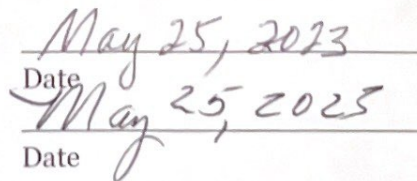 May 25, 2023
Date
May 25, 2023
Date